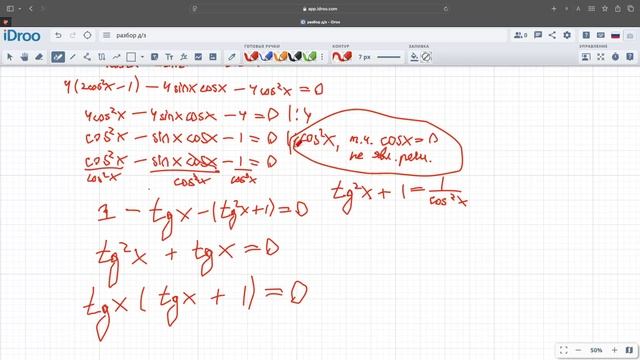 app.idroo.com
разбор д/з - iDroo
iDroo
разбор д/з
ГОТОВЫЕ РУЧКИ
КОНТУР
7 px
ЗАЛИВКА
УПРАВЛЕНИЕ
0
4(2cos²x-1) - 4sinxcosx - 4cos²x = 0
4cos²x - 4sinxcosx - 4 = 0 |:4
cos²x - sinxcosx - 1 = 0 |: cos²x, т.ч. cosx=0
не явл. реш.
cos²x/cos²x - sinxcosx/cos²x - 1/cos²x = 0
tg²x + 1 = 1/cos²x
1 - tgx - (tg²x+1) = 0
tg²x + tgx = 0
tgx ( tgx + 1) = 0
50%